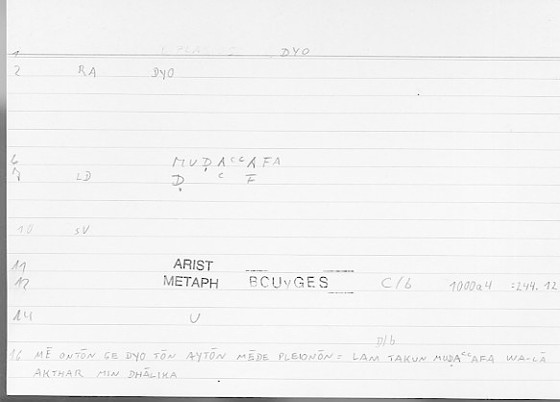 1 DYO
2 RA DYO
6 MUḌAᶜᶜAFA
7 LD Ḍ ᶜ F
10 SV
11 ARIST
12 METAPH BOUYGES C/b 1000a4 =244.12
14 U
D/b
16 MĒ ONTŌN GE DYO TŌN AYTŌN MĒDE PLEIONŌN = LAM TAKUN MUḌAᶜᶜAFA WA-LĀ
AKTHAR MIN DHĀLIKA